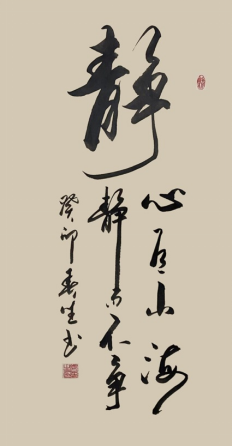 静
心有山海
静而不争
癸卯春生书